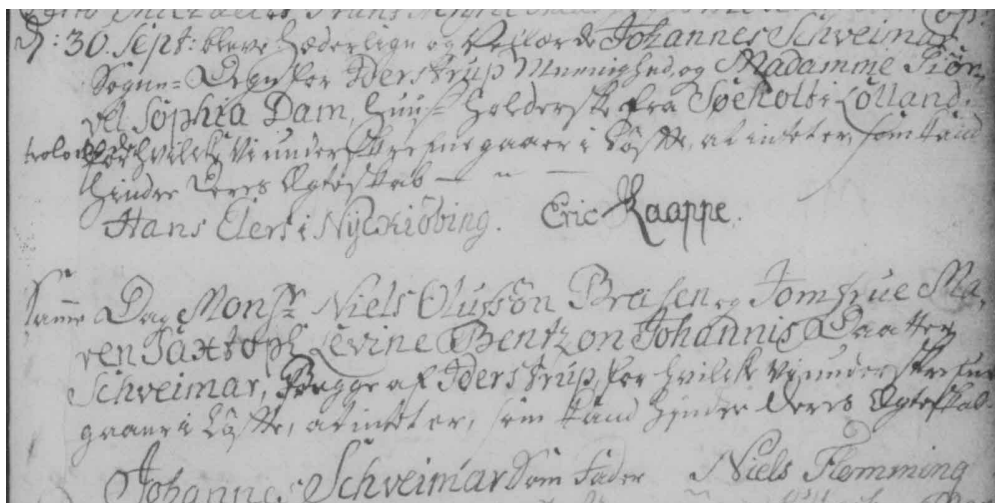 D: 30. Sept: bleve Hæderlige og Vellærde Johannes Schveimar
Sogne-Degn for Iderstrup Meenighed, og Madamme Giør,
vel Sophia Dam, Huus-Holderske fra Søeholt i Lolland.
trolov for hvilcke vi underskrefne gaaer i Løffte, at intet er, som kand
hindre deres Ægteskab — " —
Hans Elers i Nyckiöbing. Eric Kaappe.
Samme Dag Monsr Niels Olufsön Breisen og Jomfrue Ma,
ren Saxtoph Levine Bentzon Johannis Daatter
Schveimar, Begge af Iderstrup, for hvilcke vi underskrefne
gaaer i Løffte, at intet er, som kand hindre deres Ægteskab
Johannes Schveimar som Fader Niels Flemming